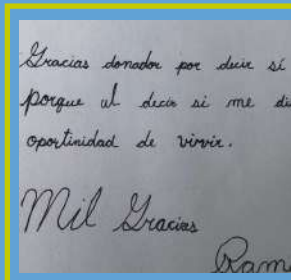 Gracias donador por decir sí
porque al decir si me di
oportinidad de vivir.
Mil Gracias
Ram